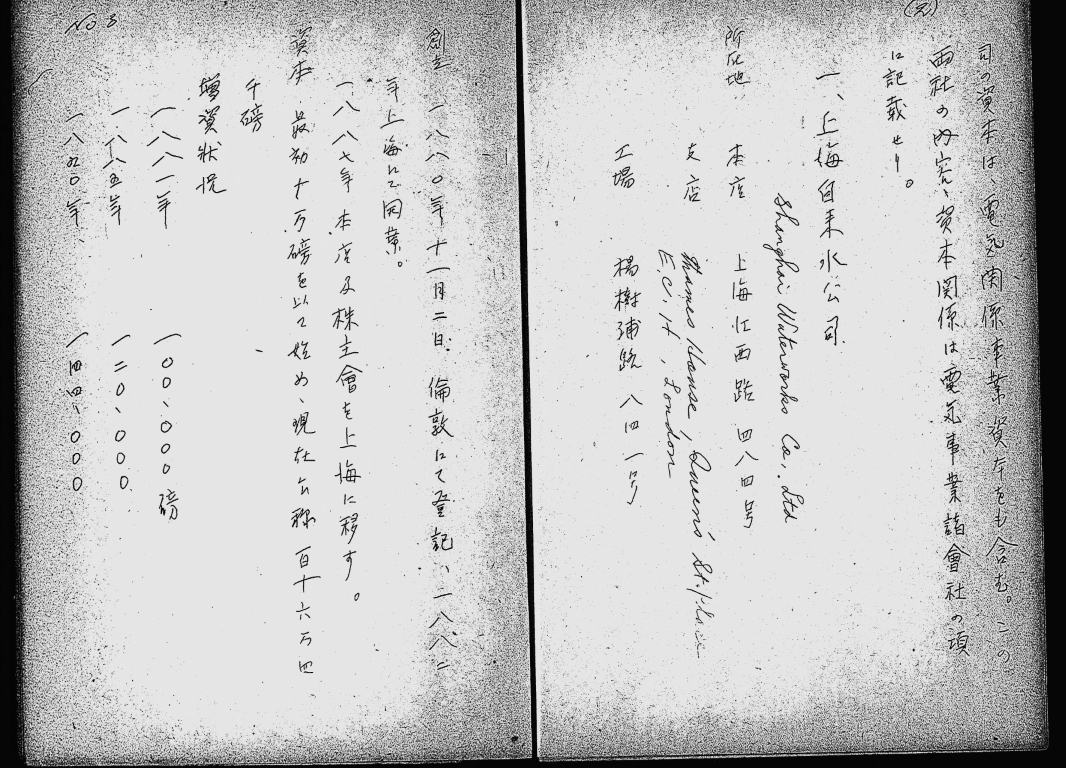 司の資本は、電気関係事業資本をも含む。この
両社の内容、資本関係は電気事業諸會社の項
に記載せり。
一、上海自来水公司
Shanghai Waterworks Co., Ltd
所在地 本店 上海江西路四八四号
支店 Thames House, Queens' St. Place
E.C. 4, London
工場 楊樹浦路八四一号
No 3
創立 一八八〇年十一月二日、倫敦にて登記、一八八二
年上海にて開業。
一八八七年本店及株主會を上海に移す。
資本 最初十万磅を以て始め、現在公称百十六万四、
千磅
増資状況
一八八一年 一〇〇、〇〇〇磅
一八八五年 一二〇、〇〇〇
一八九〇年、 一四四、〇〇〇